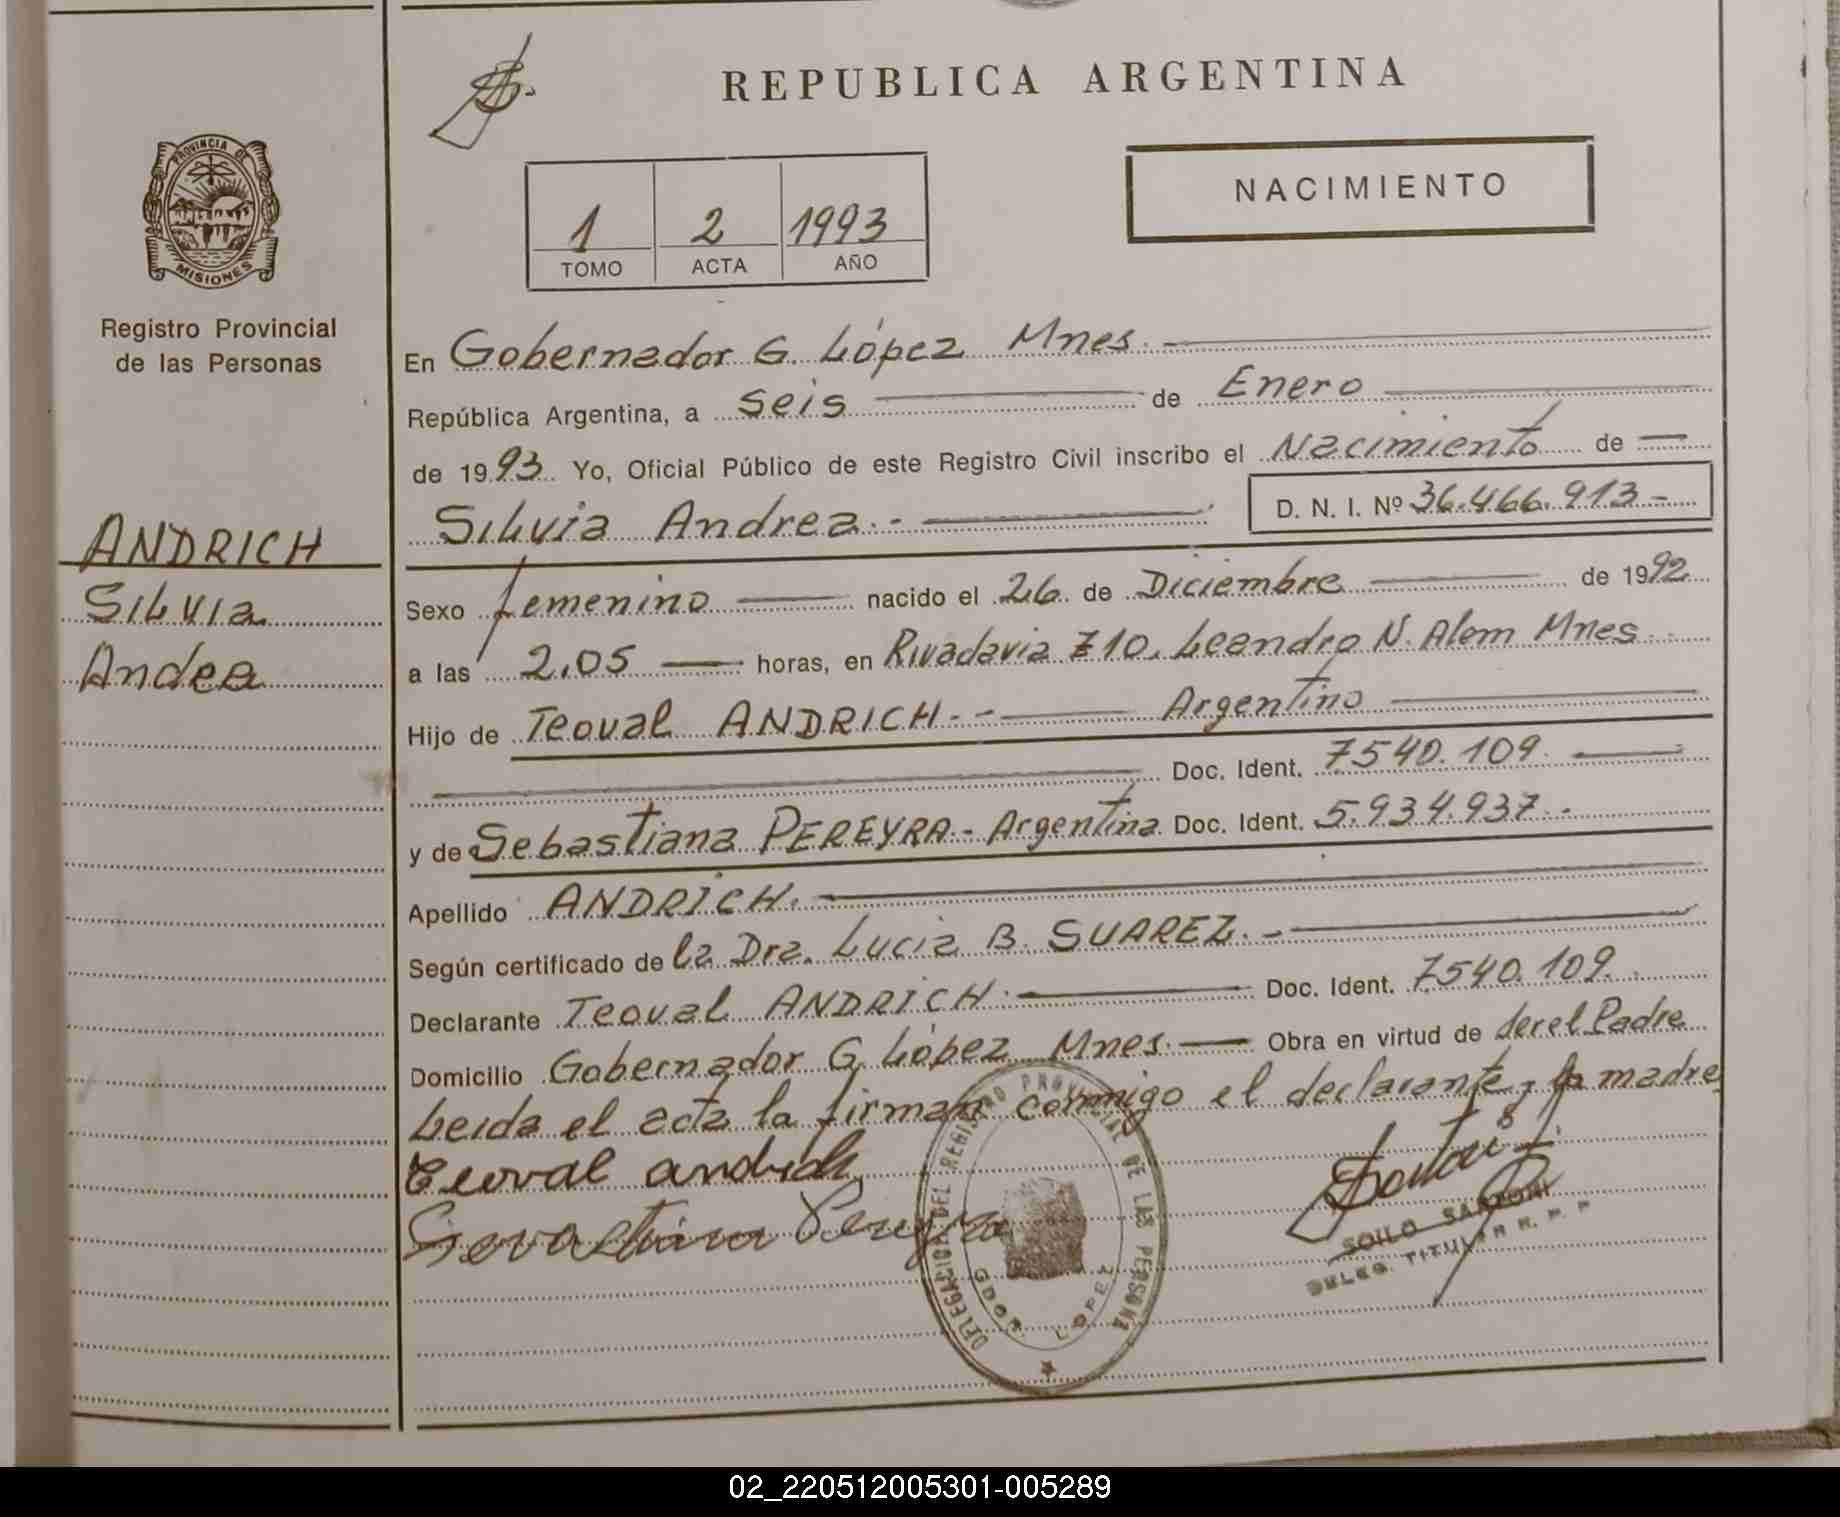 REPUBLICA ARGENTINA
NACIMIENTO
1 2 1993
TOMO ACTA AÑO
PROVINCIA DE
MISIONES
Registro Provincial
de las Personas
ANDRICH
Silvia
Andea
En Gobernador G. López Mnes.
República Argentina, a seis de Enero
de 1993 Yo, Oficial Público de este Registro Civil inscribo el Nacimiento de
Silvia Andrea.- D. N. I. Nº 36.466.913-
Sexo femenino nacido el 26 de Diciembre de 1992
a las 2.05 horas, en Rivadavia 710. Leandro N. Alem Mnes.
Hijo de Teoval ANDRICH.- Argentino
Doc. Ident. 7540.109.
y de Sebastiana PEREYRA.- Argentina Doc. Ident. 5.934.937.-
Apellido ANDRICH.
Según certificado de la Dra. Lucia B. SUAREZ.-
Declarante Teoval ANDRICH. Doc. Ident. 7540.109.
Domicilio Gobernador G. López Mnes. Obra en virtud de ser el Padre
Leida el acta la firman conmigo el declarante, la madre
Teoval andrich
Sevastiana Pereyra
DELEGACION DEL REGISTRO PROVINCIAL DE LAS PERSONAS
GDOR. LOPEZ
SOILO SARTORI
DELEG. TITULAR R. P. P.
02_220512005301-005289